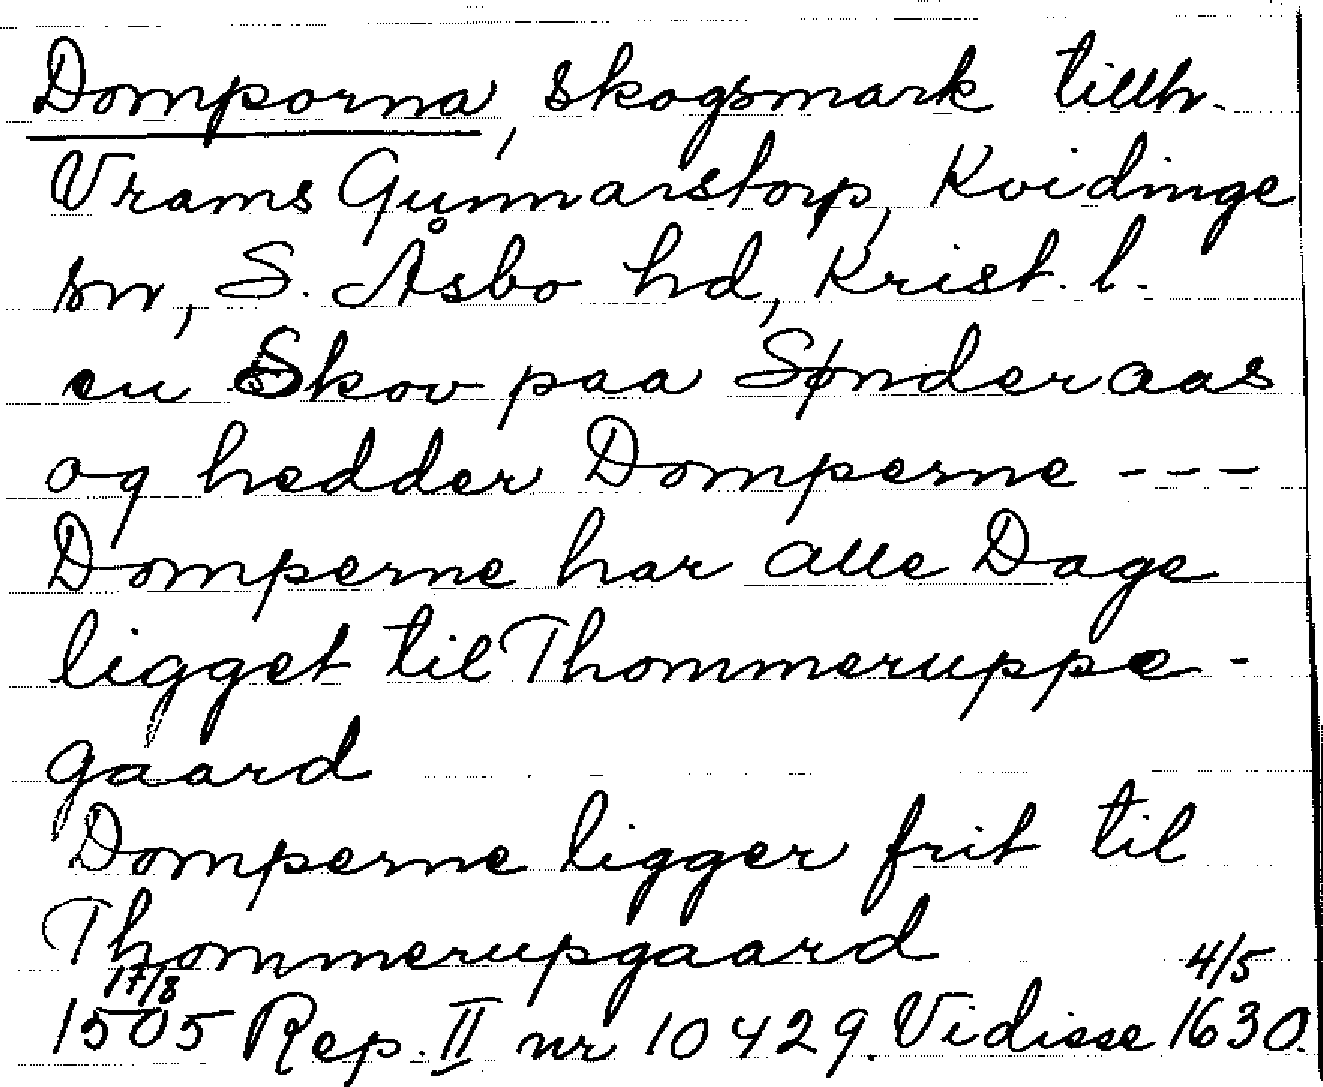 Domporna, skogsmark tillh.
Vrams Gunnarstorp, Kvidinge
sn, S. Åsbo hd, Krist. l.
en Skov paa Sønderaas
og hedder Domperne ---
Domperne har alle Dage
ligget til Thommeruppe-
gaard
Domperne ligger frit til
Thommerupgaard
17/8 1505 Rep. II nr 10429. Vidisse 4/5 1630.